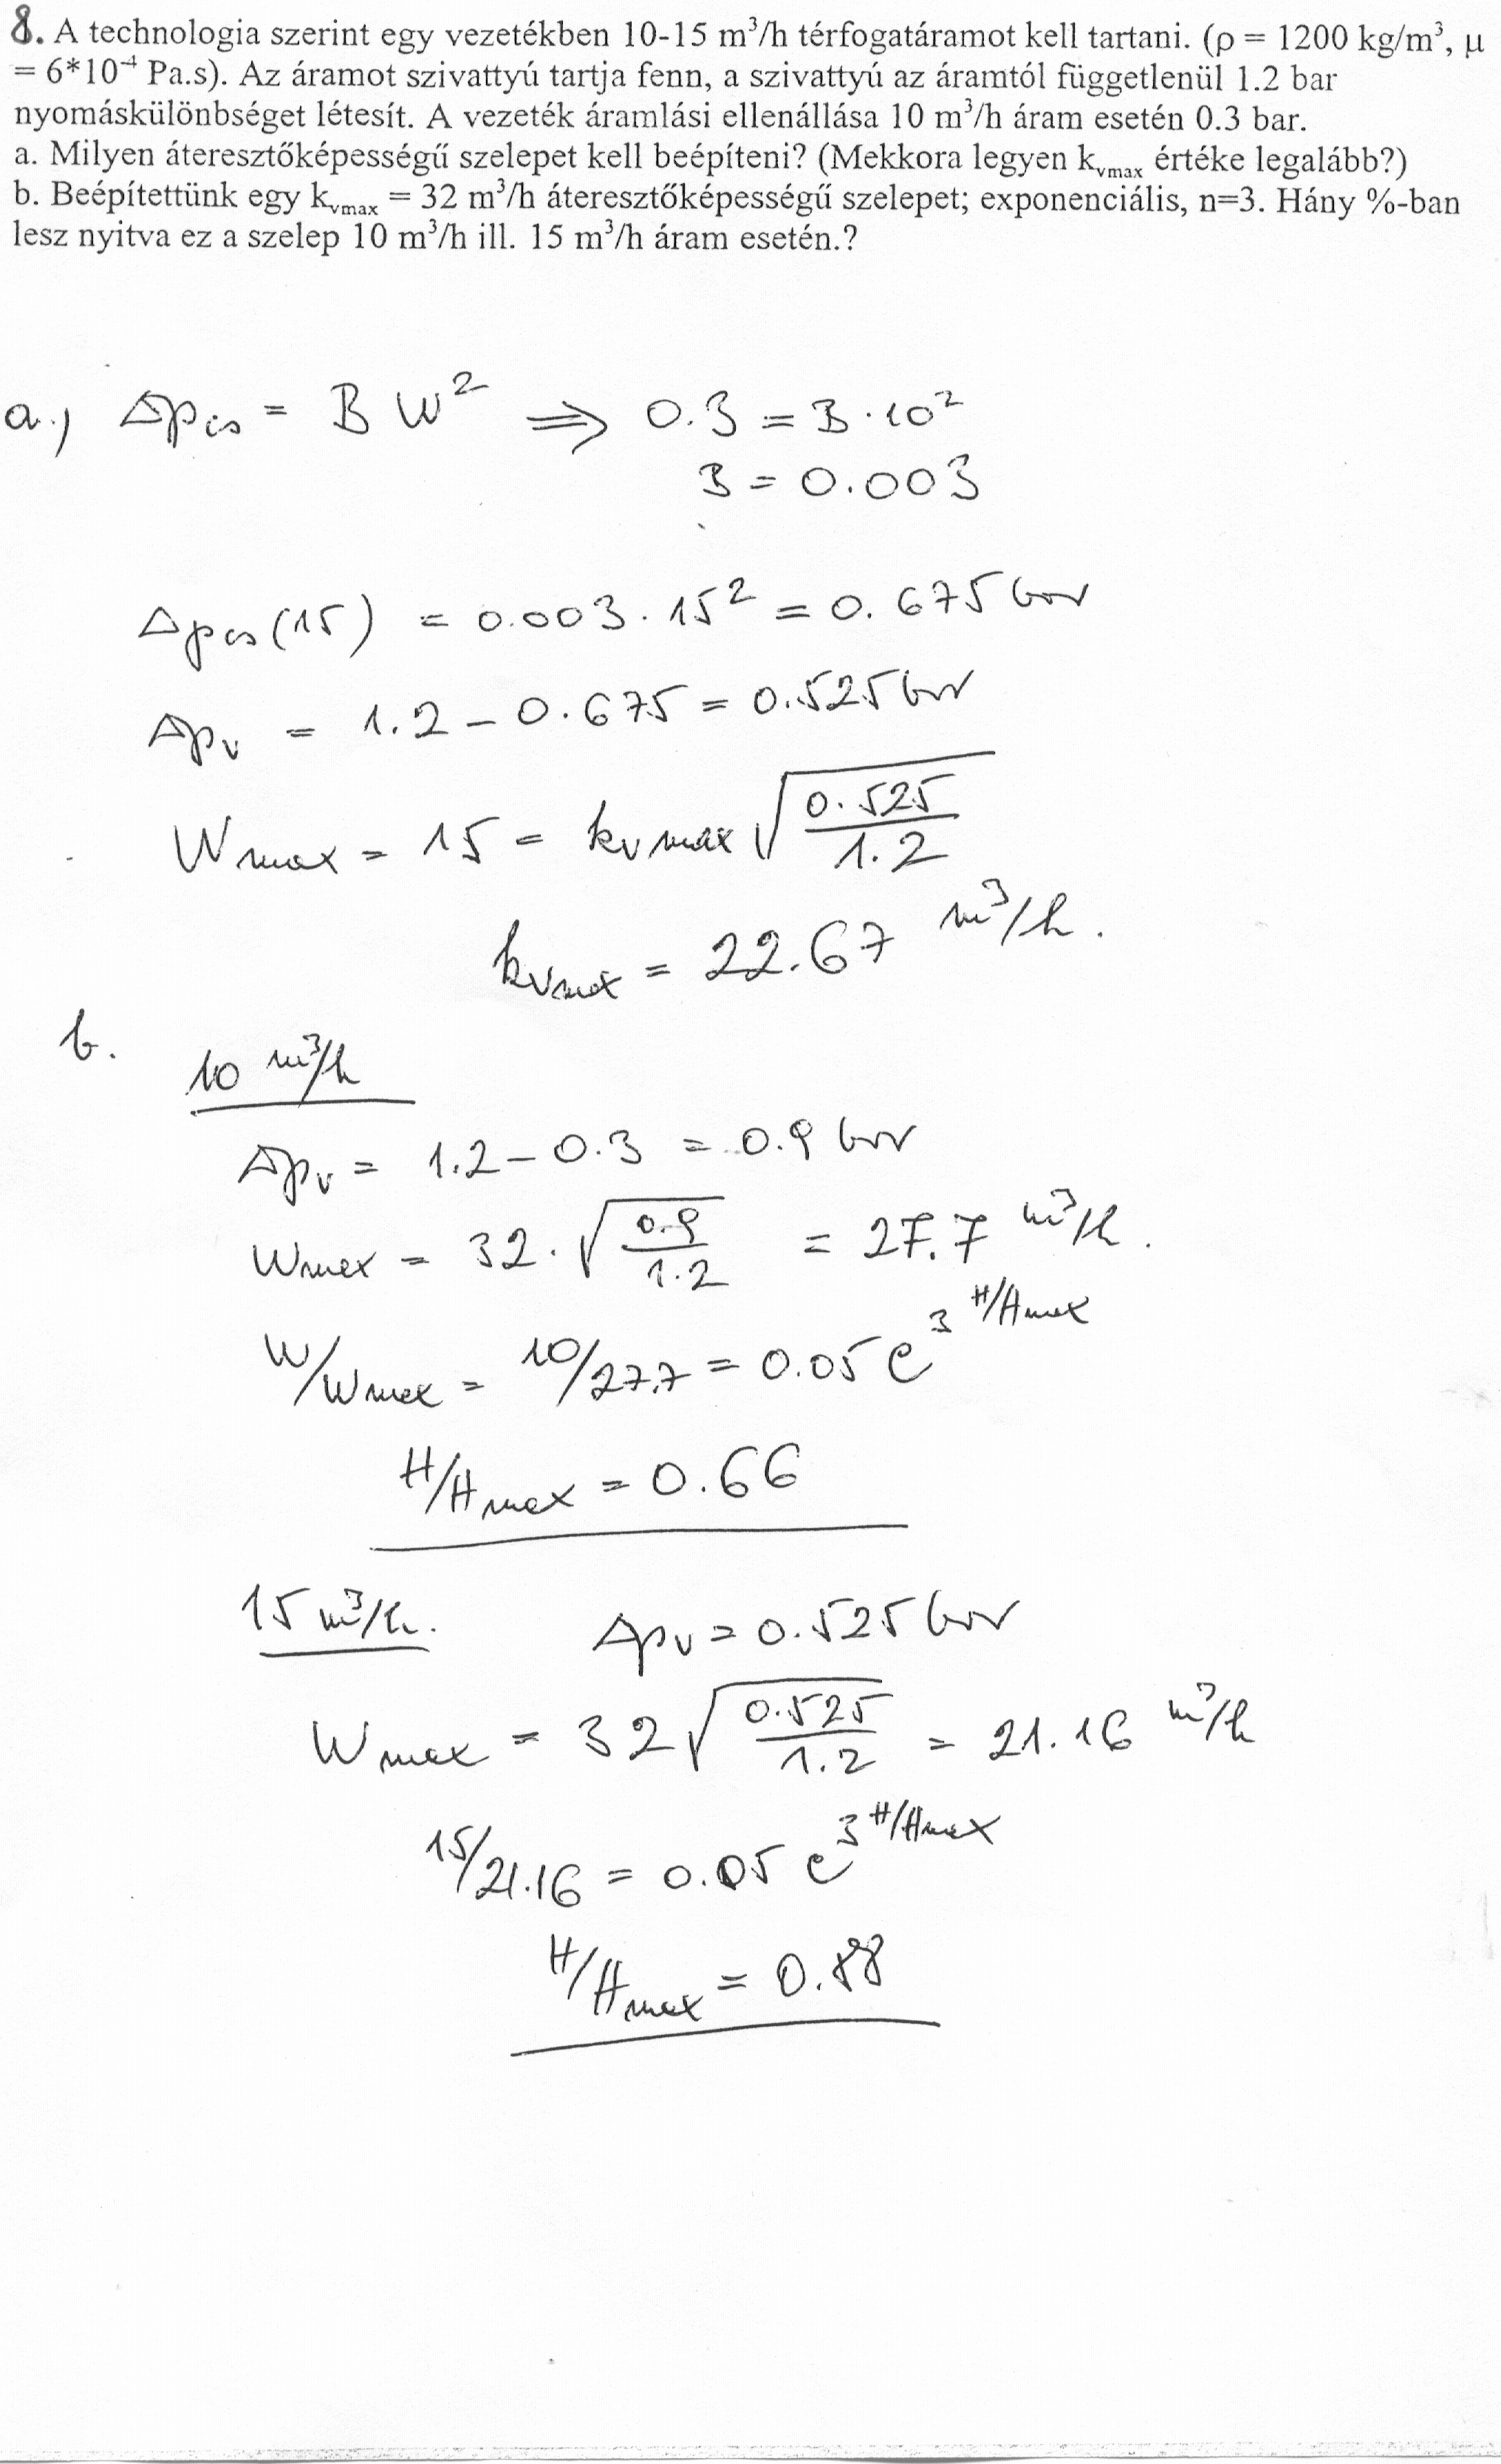 8. A technologia szerint egy vezetékben 10-15 m³/h térfogatáramot kell tartani. (ρ = 1200 kg/m³, μ
= 6*10⁻⁴ Pa.s). Az áramot szivattyú tartja fenn, a szivattyú az áramtól függetlenül 1.2 bar
nyomáskülönbséget létesít. A vezeték áramlási ellenállása 10 m³/h áram esetén 0.3 bar.
a. Milyen áteresztőképességű szelepet kell beépíteni? (Mekkora legyen kvmax értéke legalább?)
b. Beépítettünk egy kvmax = 32 m³/h áteresztőképességű szelepet; exponenciális, n=3. Hány %-ban
lesz nyitva ez a szelep 10 m³/h ill. 15 m³/h áram esetén.?
a.) Δpcs = B W² ⇒ 0.3 = B · 10²
B = 0.003
Δpcs(15) = 0.003 · 15² = 0.675 bar
Δpv = 1.2 - 0.675 = 0.525 bar
Wmax = 15 = kvmax √(0.525/1.2)
kvmax = 22.67 m³/h.
b.
10 m³/h
Δpv = 1.2 - 0.3 = 0.9 bar
Wmax = 32 · √(0.9/1.2) = 27.7 m³/h.
W/Wmax = 10/27.7 = 0.05 e^(3 H/Hmax)
H/Hmax = 0.66
15 m³/h. Δpv = 0.525 bar
Wmax = 32 √(0.525/1.2) = 21.16 m³/h
15/21.16 = 0.05 e^(3 H/Hmax)
H/Hmax = 0.88